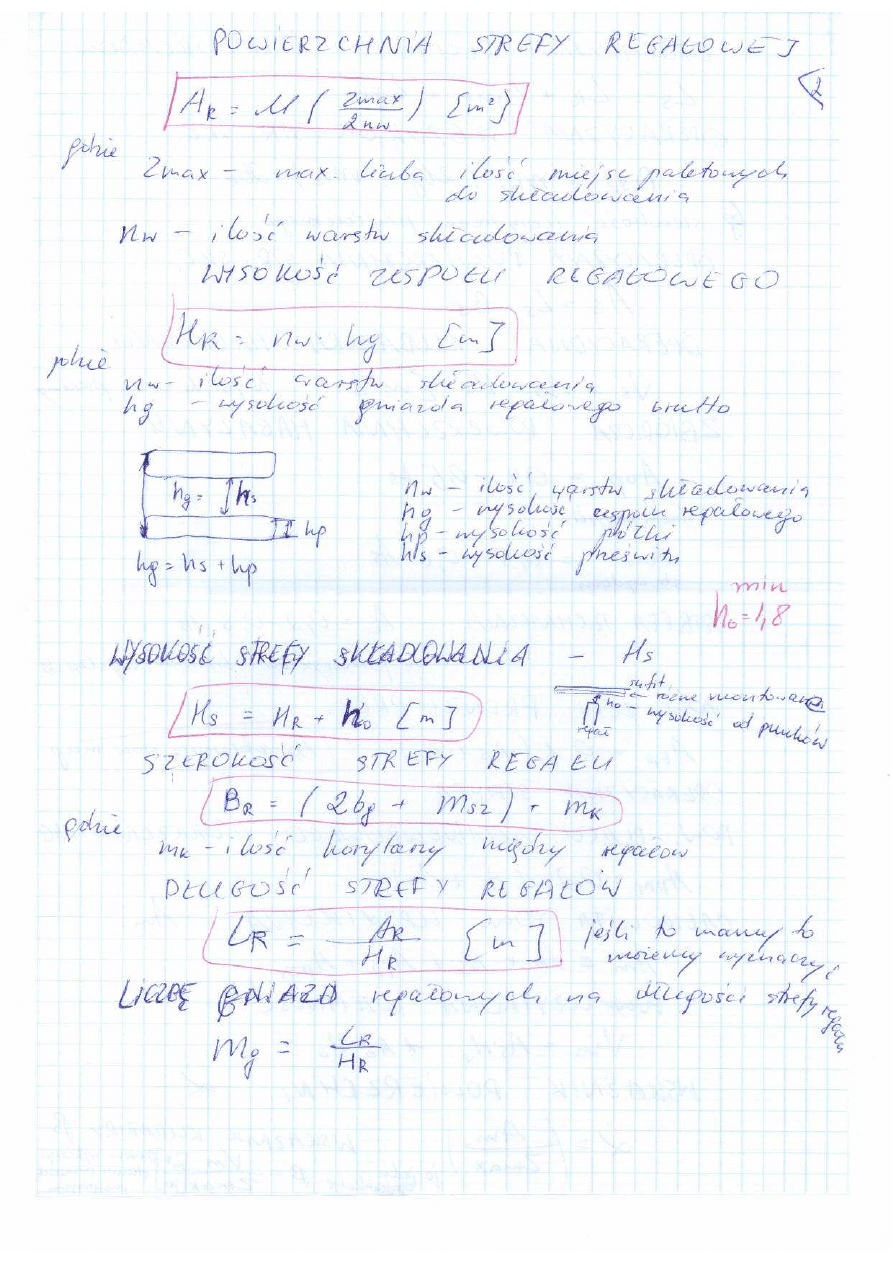 POWIERZCHNIA STREFY REGAŁOWEJ
2
AR = M ( Zmax / 2nw ) [m²]
gdzie
Zmax – max. liczba ilość miejsc paletowych
do składowania
nw – ilość warstw składowania
WYSOKOŚĆ ZESPOŁU REGAŁOWEGO
HR = nw · hg [m]
gdzie
nw – ilość warstw składowania
hg – wysokość gniazda regałowego brutto
hg = hs
hp
hg = hs + hp
nw – ilość warstw składowania
hg – wysokość zespołu regałowego
hp – wysokość półki
hs – wysokość prześwitu
min
ho = 1,8
WYSOKOŚĆ STREFY SKŁADOWANIA – Hs
Hs = HR + ho [m]
sufit
różne montowane
ho – wysokość od
regał
SZEROKOŚĆ STREFY REGAŁU
BR = (2bg + Msz) · mk
gdzie
mk – ilość korytarzy między regałów
DŁUGOŚĆ STREFY REGAŁÓW
LR = AR / HR [m]
jeśli to mamy to
możemy wyznaczyć
LICZBĘ GNIAZD regałowych na długości strefy regałów
Mg = LR / HR